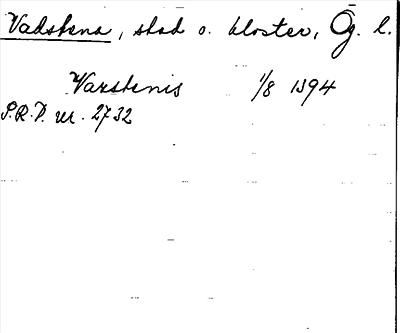 Vadstena, stad o. kloster, Ög. l.
Warstenis 1/8 1394
S.R.P. nr. 2732